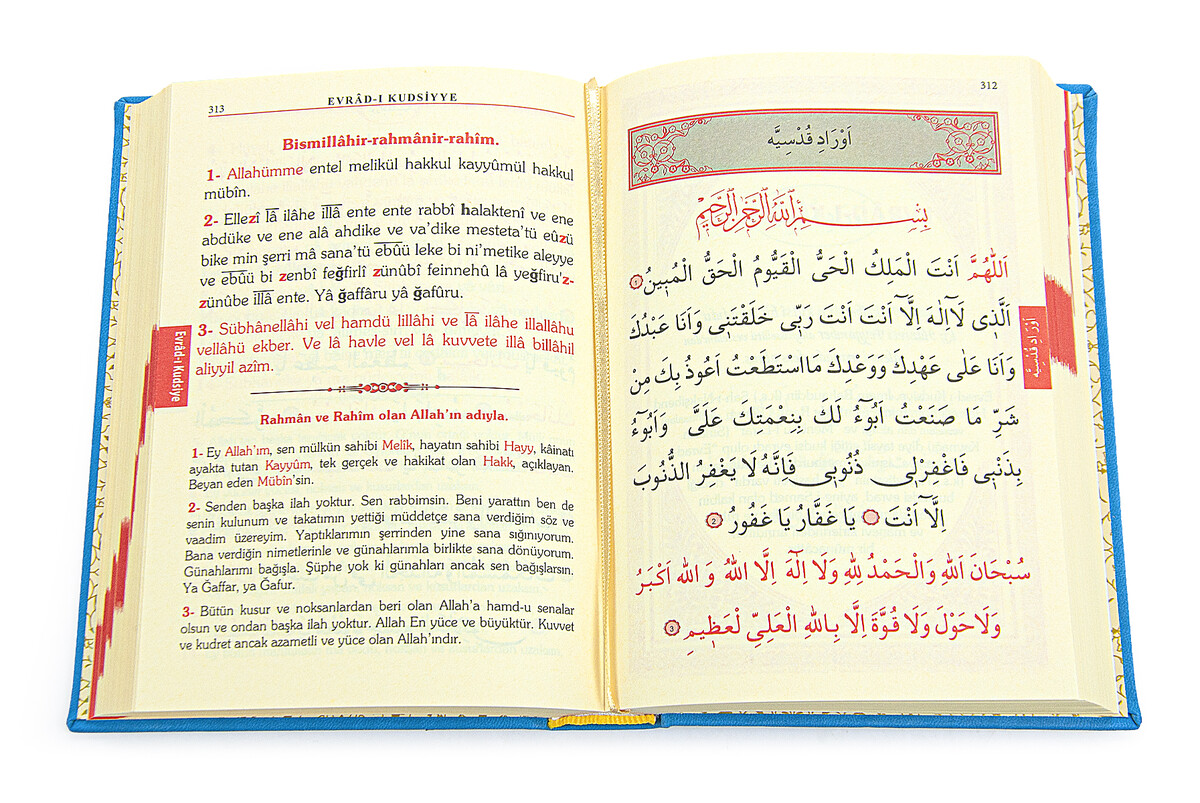 313
EVRÂD-I KUDSİYYE
Bismillâhir-rahmânir-rahîm.
1- Allahümme entel melikül hakkul kayyûmül hakkul
mübîn.
2- Ellezî lâ ilâhe illâ ente ente rabbî halaktenî ve ene
abdüke ve ene alâ ahdike ve va'dike mesteta'tü eûzü
bike min şerri mâ sana'tü ebûü leke bi ni'metike aleyye
ve ebûü bi zenbî feğfirlî zünûbî feinnehû lâ yeğfiru'z-
zünûbe illâ ente. Yâ ğaffâru yâ ğafûru.
3- Sübhânellâhi vel hamdü lillâhi ve lâ ilâhe illallâhu
vellâhü ekber. Ve lâ havle vel lâ kuvvete illâ billâhil
aliyyil azîm.
Evrâd-ı Kudsiye
Rahmân ve Rahîm olan Allah'ın adıyla.
1- Ey Allah'ım, sen mülkün sahibi Melîk, hayatın sahibi Hayy, kâinatı
ayakta tutan Kayyûm, tek gerçek ve hakikat olan Hakk, açıklayan.
Beyan eden Mübîn'sin.
2- Senden başka ilah yoktur. Sen rabbimsin. Beni yarattın ben de
senin kulunum ve takatımın yettiği müddetçe sana verdiğim söz ve
vaadim üzereyim. Yaptıklarımın şerrinden yine sana sığınıyorum.
Bana verdiğin nimetlerinle ve günahlarımla birlikte sana dönüyorum.
Günahlarımı bağışla. Şüphe yok ki günahları ancak sen bağışlarsın.
Ya Ğaffar, ya Ğafur.
3- Bütün kusur ve noksanlardan beri olan Allah'a hamd-u senalar
olsun ve ondan başka ilah yoktur. Allah En yüce ve büyüktür. Kuvvet
ve kudret ancak azametli ve yüce olan Allah'ındır.
312
اَوْرَادِ قُدْسِيَّه
بِسْــــمِ اللّٰهِ الرَّحْمٰنِ الرَّحٖيمِ
اَللّٰهُمَّ اَنْتَ الْمَلِكُ الْحَىُّ الْقَيُّومُ الْحَقُّ الْمُبٖينُ ١
اَلَّذٖى لَآاِلٰهَ اِلَّآ اَنْتَ اَنْتَ رَبّٖى خَلَقْتَنٖى وَاَنَا عَبْدُكَ
وَاَنَا عَلٰى عَهْدِكَ وَوَعْدِكَ مَااسْتَطَعْتُ اَعُوذُ بِكَ مِنْ
شَرِّ مَا صَنَعْتُ اَبُوٓءُ لَكَ بِنِعْمَتِكَ عَلَىَّ وَاَبُوٓءُ
بِذَنْبٖى فَاغْفِرْلٖى ذُنُوبٖى فَاِنَّهُ لَا يَغْفِرُ الذُّنُوبَ
اِلَّآ اَنْتَ يَا غَفَّارُ يَا غَفُورُ ٢
سُبْحَانَ اللهِ وَالْحَمْدُ لِلّٰهِ وَلَا اِلٰهَ اِلَّا اللهُ وَ اللهُ اَكْبَرُ
وَلَا حَوْلَ وَلَا قُوَّةَ اِلَّا بِاللهِ الْعَلِىِّ لْعَظٖيمِ ٣
اَوْرَادِ قُدْسِيَّه